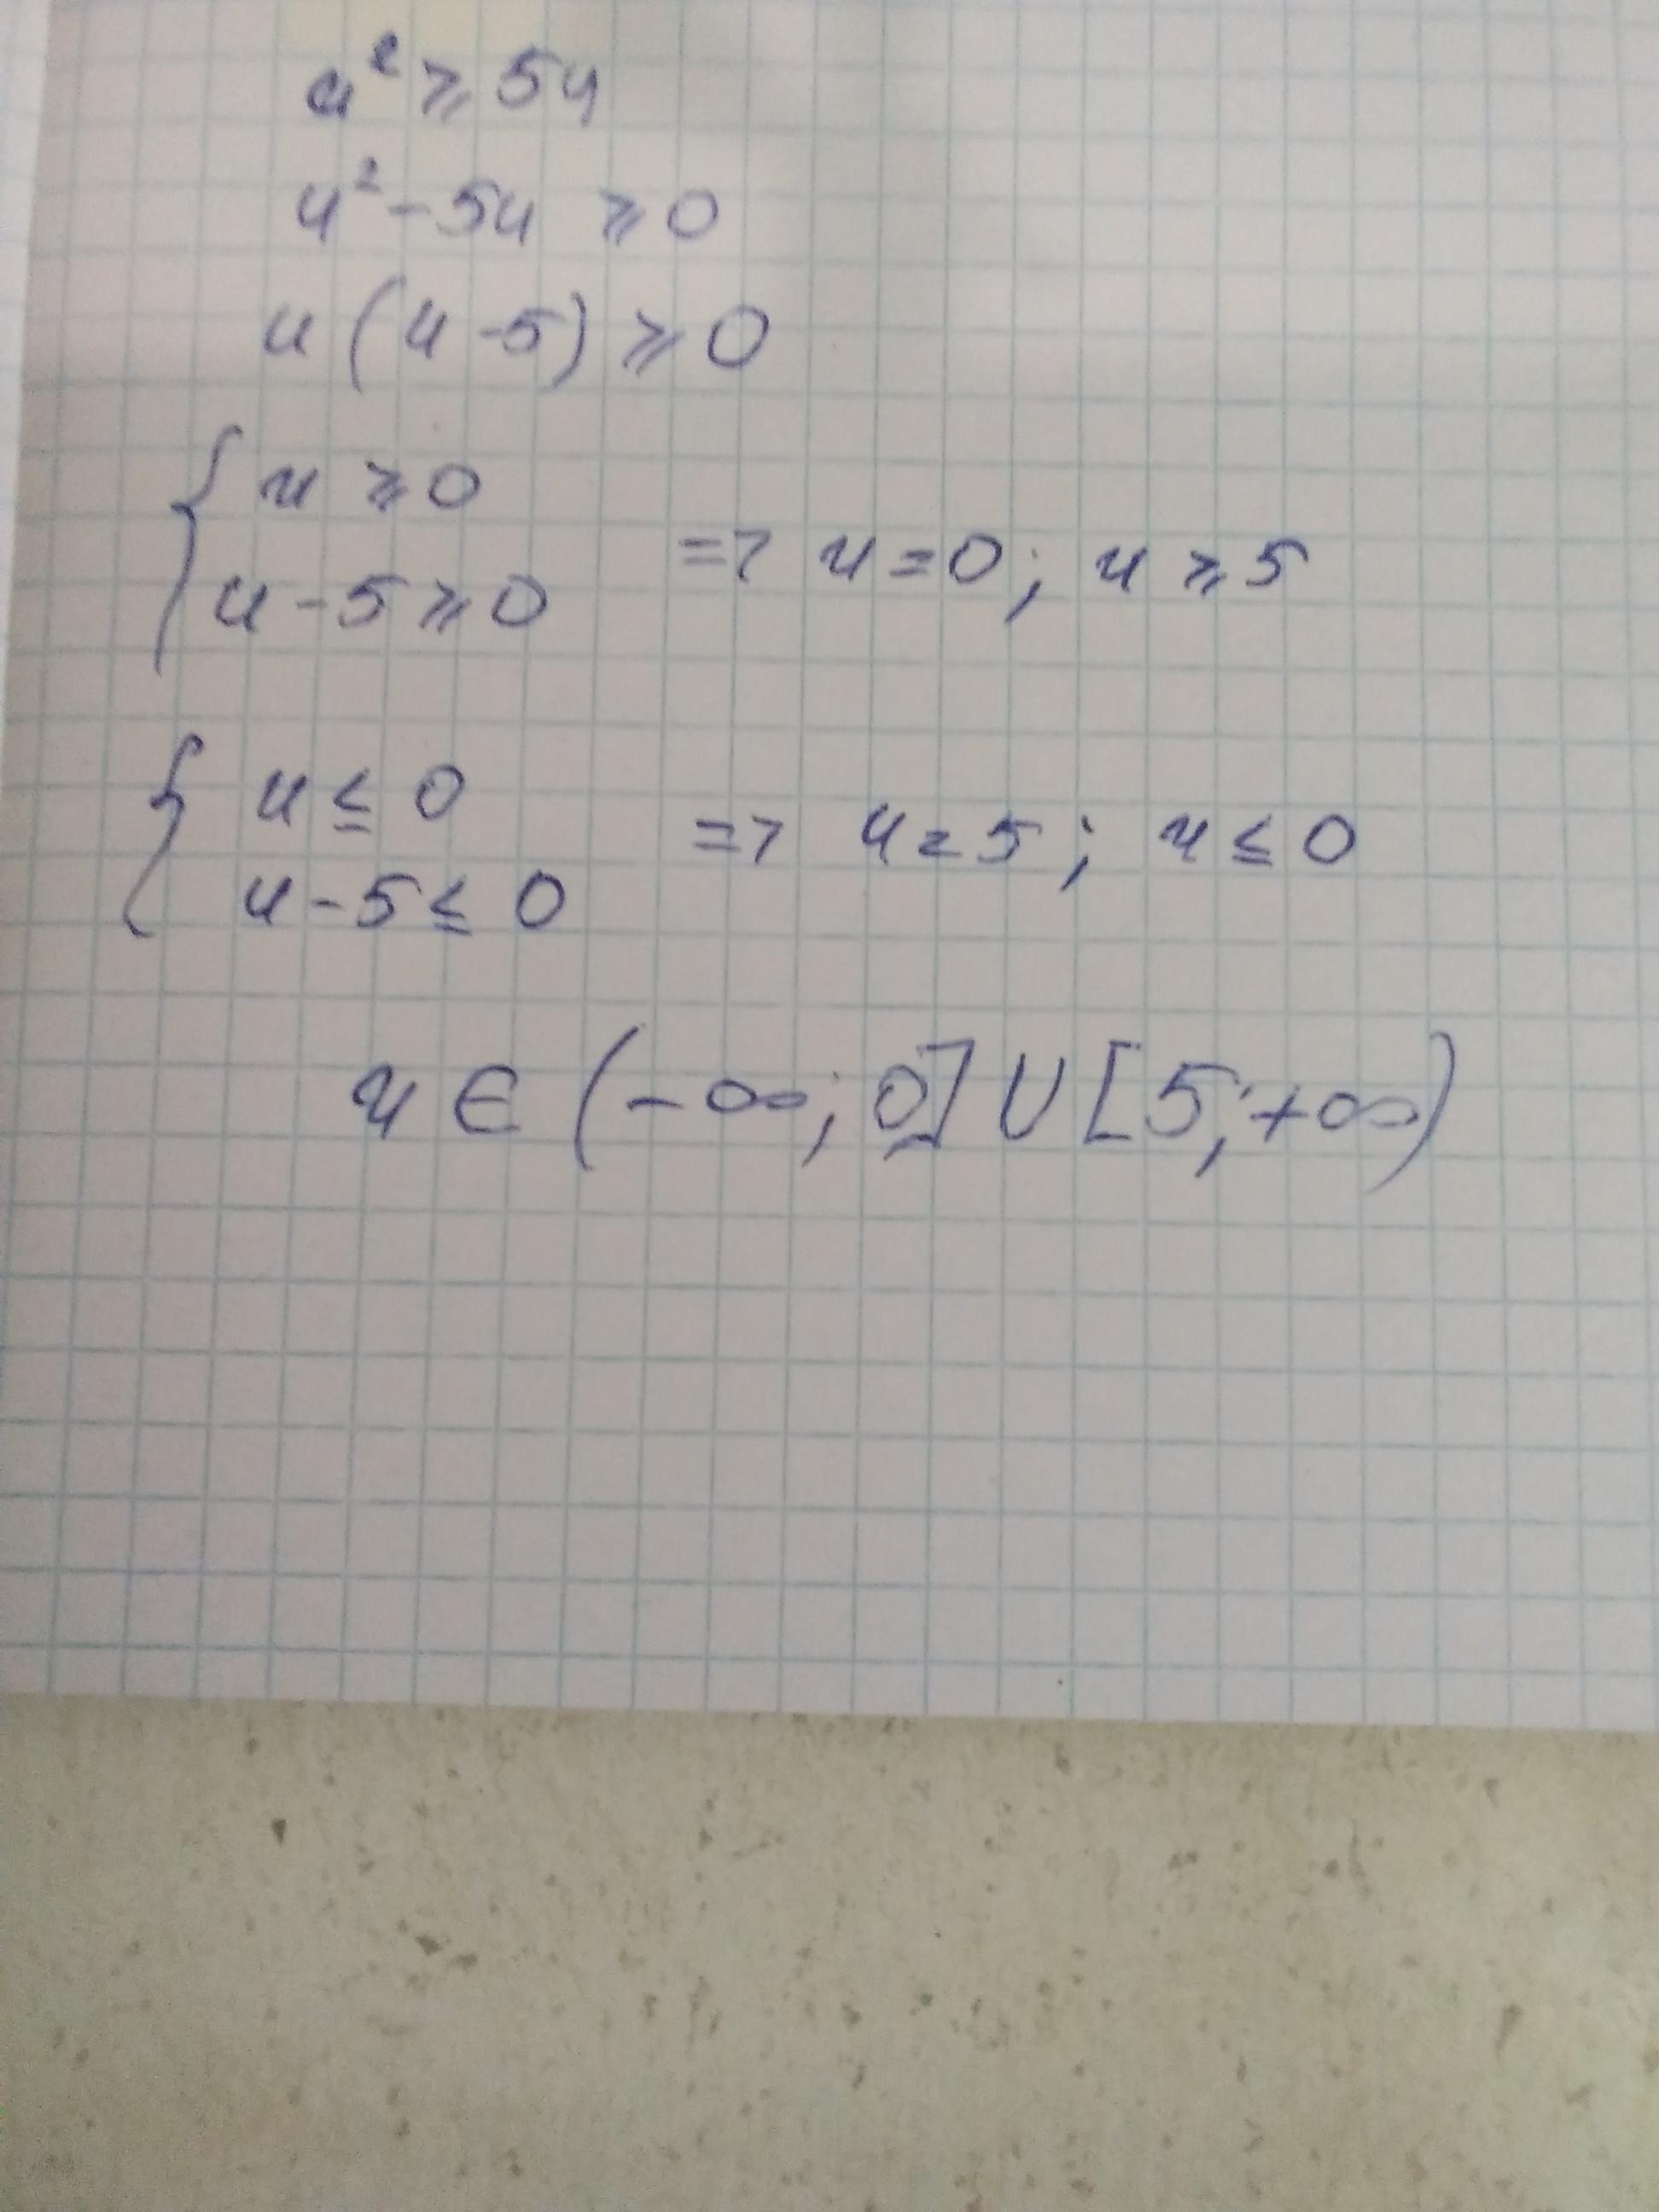 u² ≥ 5u
u² - 5u ≥ 0
u (u - 5) ≥ 0
{ u ≥ 0
u - 5 ≥ 0 => u = 0; u ≥ 5
{ u ≤ 0
u - 5 ≤ 0 => u = 5; u ≤ 0
u ∈ (-∞; 0] ∪ [5; +∞)